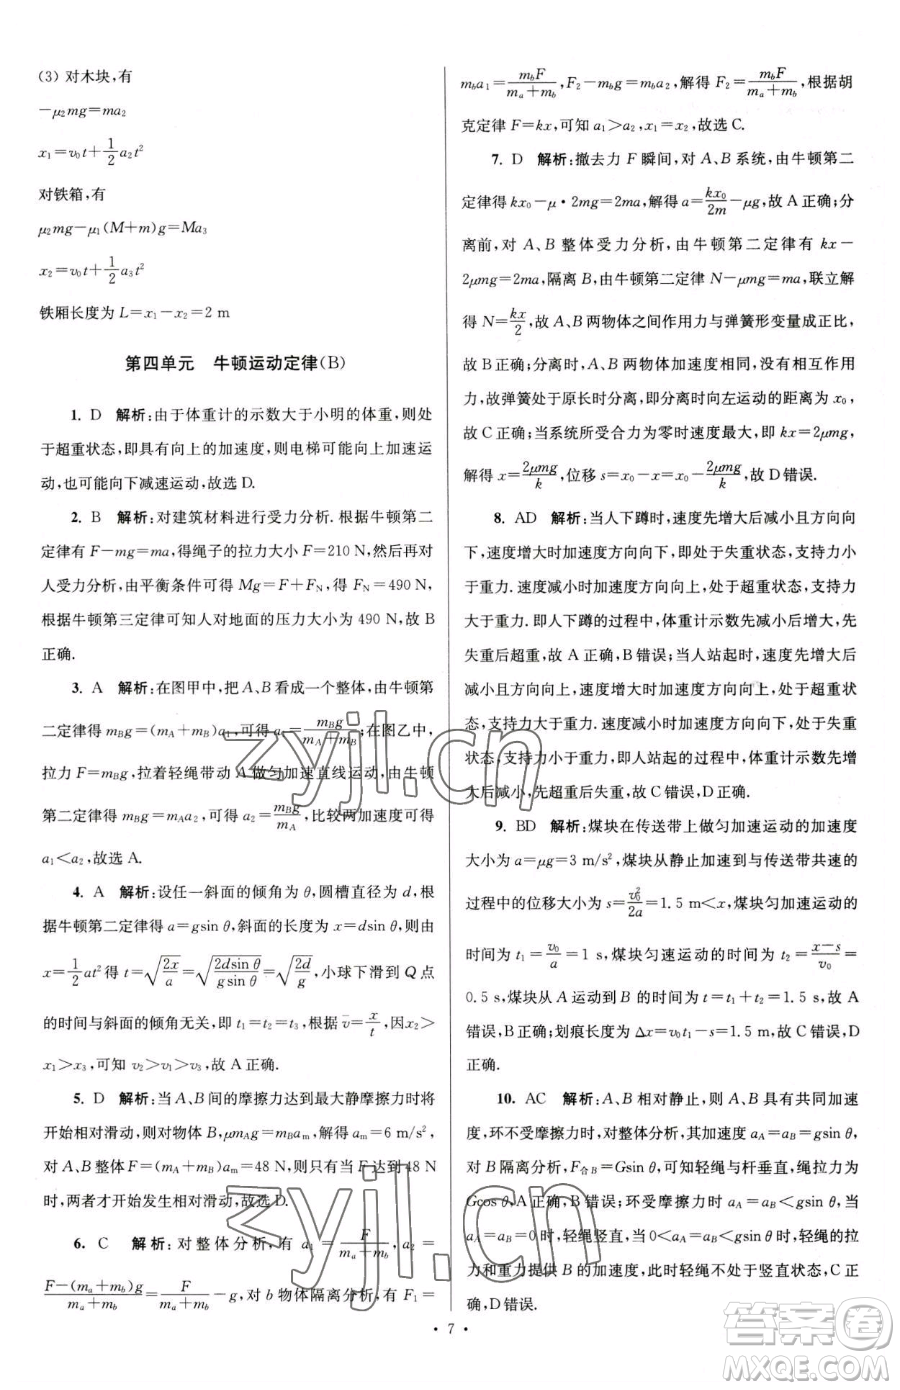 (3) 对木块,有
−μ₂mg=ma₂
x₁=v₀t+\frac{1}{2}a₂t²
对铁箱,有
μ₂mg−μ₁(M+m)g=Ma₃
x₂=v₀t+\frac{1}{2}a₃t²
铁厢长度为 L=x₁−x₂=2 m
第四单元 牛顿运动定律(B)
1. D 解析:由于体重计的示数大于小明的体重,则处
于超重状态,即具有向上的加速度,则电梯可能向上加速运
动,也可能向下减速运动,故选 D.
2. B 解析:对建筑材料进行受力分析. 根据牛顿第二
定律有 F−mg=ma,得绳子的拉力大小 F=210 N,然后再对
人受力分析,由平衡条件可得 Mg=F+F_N,得 F_N=490 N,
根据牛顿第三定律可知人对地面的压力大小为 490 N,故 B
正确.
3. A 解析:在图甲中,把 A、B 看成一个整体,由牛顿第
二定律得 m_Bg=(m_A+m_B)a₁,可得 a₁=\frac{m_Bg}{m_A+m_B};在图乙中,
拉力 F=m_Bg,拉着轻绳带动 A 做匀加速直线运动,由牛顿
第二定律得 m_Bg=m_Aa₂,可得 a₂=\frac{m_Bg}{m_A},比较两加速度可得
a₁<a₂,故选 A.
4. A 解析:设任一斜面的倾角为 θ,圆槽直径为 d,根
据牛顿第二定律得 a=gsin θ,斜面的长度为 x=dsin θ,则由
x=\frac{1}{2}at² 得 t=\sqrt{\frac{2x}{a}}=\sqrt{\frac{2dsin θ}{gsin θ}}=\sqrt{\frac{2d}{g}},小球下滑到 Q 点
的时间与斜面的倾角无关,即 t₁=t₂=t₃,根据 \bar{v}=\frac{x}{t},因x₂>
x₁>x₃,可知 v₂>v₁>v₃,故 A 正确.
5. D 解析:当 A、B 间的摩擦力达到最大静摩擦力时将
开始相对滑动,对物体 B,μm_Ag=m_Ba_m,解得 a_m=6 m/s²,
对 A、B 整体 F=(m_A+m_B)a_m=48 N,则只有当 F>48 N
时,两者才开始发生相对滑动,故选 D.
6. C 解析:对整体分析,有 a₁=\frac{F}{m_a+m_b},a₂=
\frac{F−(m_a+m_b)g}{m_a+m_b}=\frac{F}{m_a+m_b}−g,对 b 物体隔离分析,有 F₁=
m_ba₁=\frac{m_bF}{m_a+m_b},F₂−m_bg=m_ba₂,解得 F₂=\frac{m_bF}{m_a+m_b},根据胡
克定律 F=kx,可知 a₁>a₂,x₁=x₂,故选 C.
7. D 解析:撤去力 F 瞬间,对 A、B 系统,由牛顿第二
定律得 kx₀−μ·2mg=2ma,解得 a=\frac{kx₀}{2m}−μg,故 A 正确;分
离前,对 A、B 整体受力分析,由牛顿第二定律有 kx−
2μmg=2ma,隔离 B,由牛顿第二定律 N−μmg=ma,联立解
得 N=\frac{kx}{2},故 A、B 两物体之间作用力与弹簧形变量成正比,
故 B 正确;分离时,A、B 两物体加速度相同、之间无相互作用,
故弹簧处于原长时分离,即分离时向左运动的距离为 x₀,
故 C 正确;当系统所受合力为零时速度最大,即 kx=2μmg,
解得 x=\frac{2μmg}{k},位移 s=x₀−x=x₀−\frac{2μmg}{k},故 D 错误.
8. AD 解析:当人下蹲时,速度先增大后减小且方向向
下,速度增大时加速度方向向下,处于失重状态,支持力小
于重力. 速度减小时加速度方向向上,处于超重状态,支持力
大于重力. 即人下蹲的过程中,体重计示数先减小后增大,先
失重后超重,故 A 正确,B 错误;当人站起时,速度先增大后
减小且方向向上,速度增大时加速度方向向上,处于超重状
态,支持力大于重力. 速度减小时加速度方向向下,处于失重
状态,支持力小于重力. 即人站起的过程中,体重计示数先增
大后减小,先超重后失重,故 C 错误,D 正确.
9. BD 解析:煤块在传送带上做匀加速运动的加速度
大小为 a=μg=3 m/s²,煤块从静止加速到与传送带共速的
过程中的位移大小为 s=\frac{v₀²}{2a}=1.5 m<x,煤块匀加速运动的
时间为 t₁=\frac{v₀}{a}=1 s,煤块匀速运动的时间为 t₂=\frac{x−s}{v₀}=
0.5 s,煤块从 A 运动到 B 的时间为 t=t₁+t₂=1.5 s,故 A
错误,B 正确;划痕长度为 Δx=v₀t₁−s=1.5 m,故 C 错误,D
正确.
10. AC 解析:若 A、B 相对静止,则 A、B 具有共同加速
度,环不受摩擦力时,对整体分析,加速度 a_A=a_B=gsin θ,
对 B 隔离分析,F_{合B}=Gsin θ,可知轻绳与杆垂直,绳拉力为
Gcos θ,A 正确,B 错误;环受摩擦力时 a_A=a_B<gsin θ,
当 a_A=a_B=0 时,轻绳竖直,当 0<a_A=a_B<gsin θ 时,绳的拉
力和重力不能提供加速度,此时轻绳不处于竖直状态,C 正
确,D 错误.
· 7 ·
zyjl.cn
zyjl.cn
答案圈
MXQE.COM